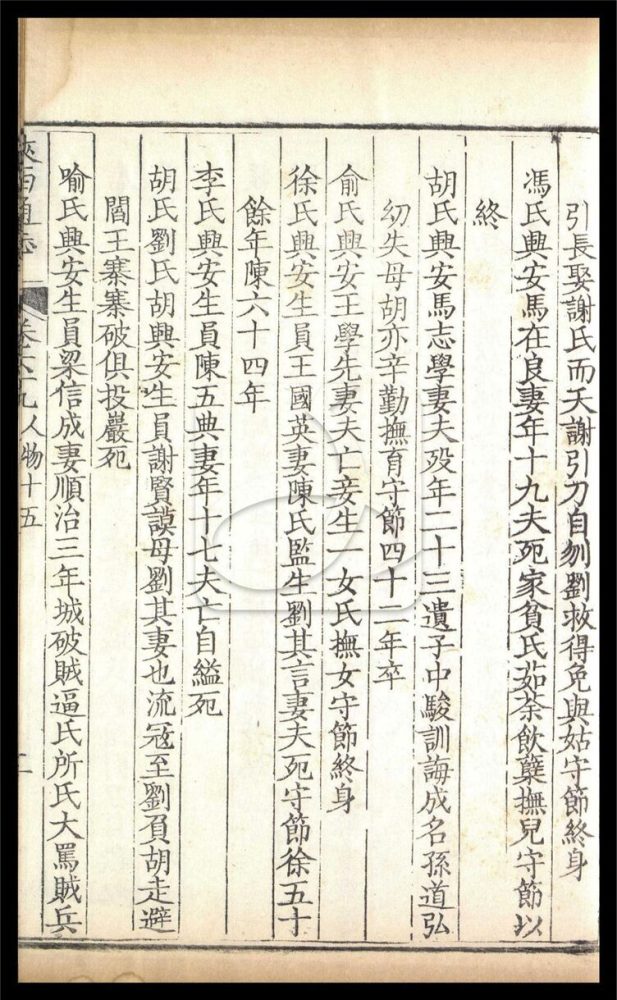 引長娶謝氏而夭謝引刀自刎劉救得免與姑守節終身
馮氏興安馬在良妻年十九夫死家貧氏茹荼飲蘗撫兒守節以
終
胡氏興安馬志學妻夫殁年二十三遺子中駿訓誨成名孫道弘
幼失母胡亦辛勤撫育守節四十二年卒
俞氏興安王學先妻夫亡妾生一女氏撫女守節終身
徐氏興安生員王國英妻陳氏監生劉其言妻夫死守節徐五十
餘年陳六十四年
李氏興安生員陳五典妻年十七夫亡自縊死
胡氏劉氏胡興安生員謝賢謨母劉其妻也流冦至劉負胡走避
閻王寨寨破俱投巖死
喻氏興安生員梁信成妻順治三年城破賊逼氏所氏大罵賊兵
陝西通志 卷六九人物十五